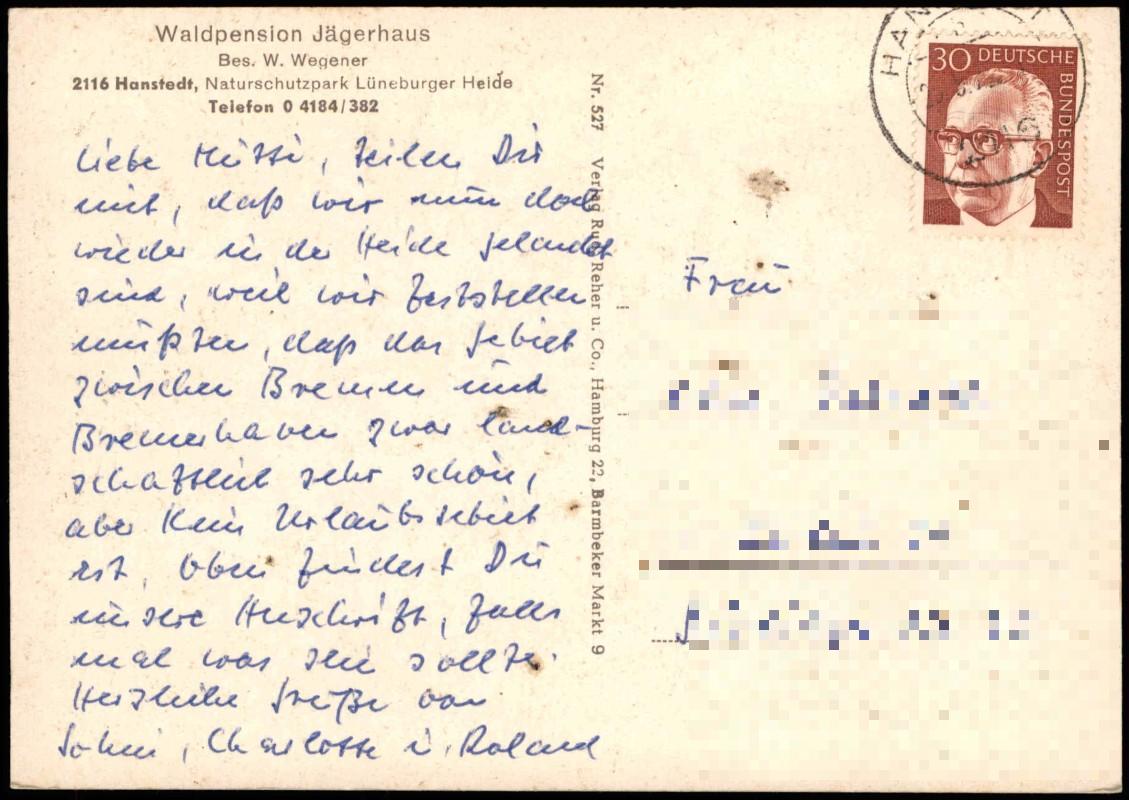 Waldpension Jägerhaus
Bes. W. Wegener
2116 Hanstedt, Naturschutzpark Lüneburger Heide
Telefon 0 4184/382
Liebe Mutti, teilen Dir
mit, daß wir nun doch
wieder in der Heide gelandet
sind, weil wir feststellen
mußten, daß das Gebiet
zwischen Bremen und
Bremerhaven zwar land-
schaftlich sehr schön,
aber kein Urlaubsgebiet
ist. Oben findest Du
unsere Anschrift, falls
mal was sein sollte.
Herzliche Grüße von
Charlotte u. Roland
Nr. 527 Verlag Rud. Reher u. Co., Hamburg 22, Barmbeker Markt 9
30 DEUTSCHE
BUNDESPOST
Frau